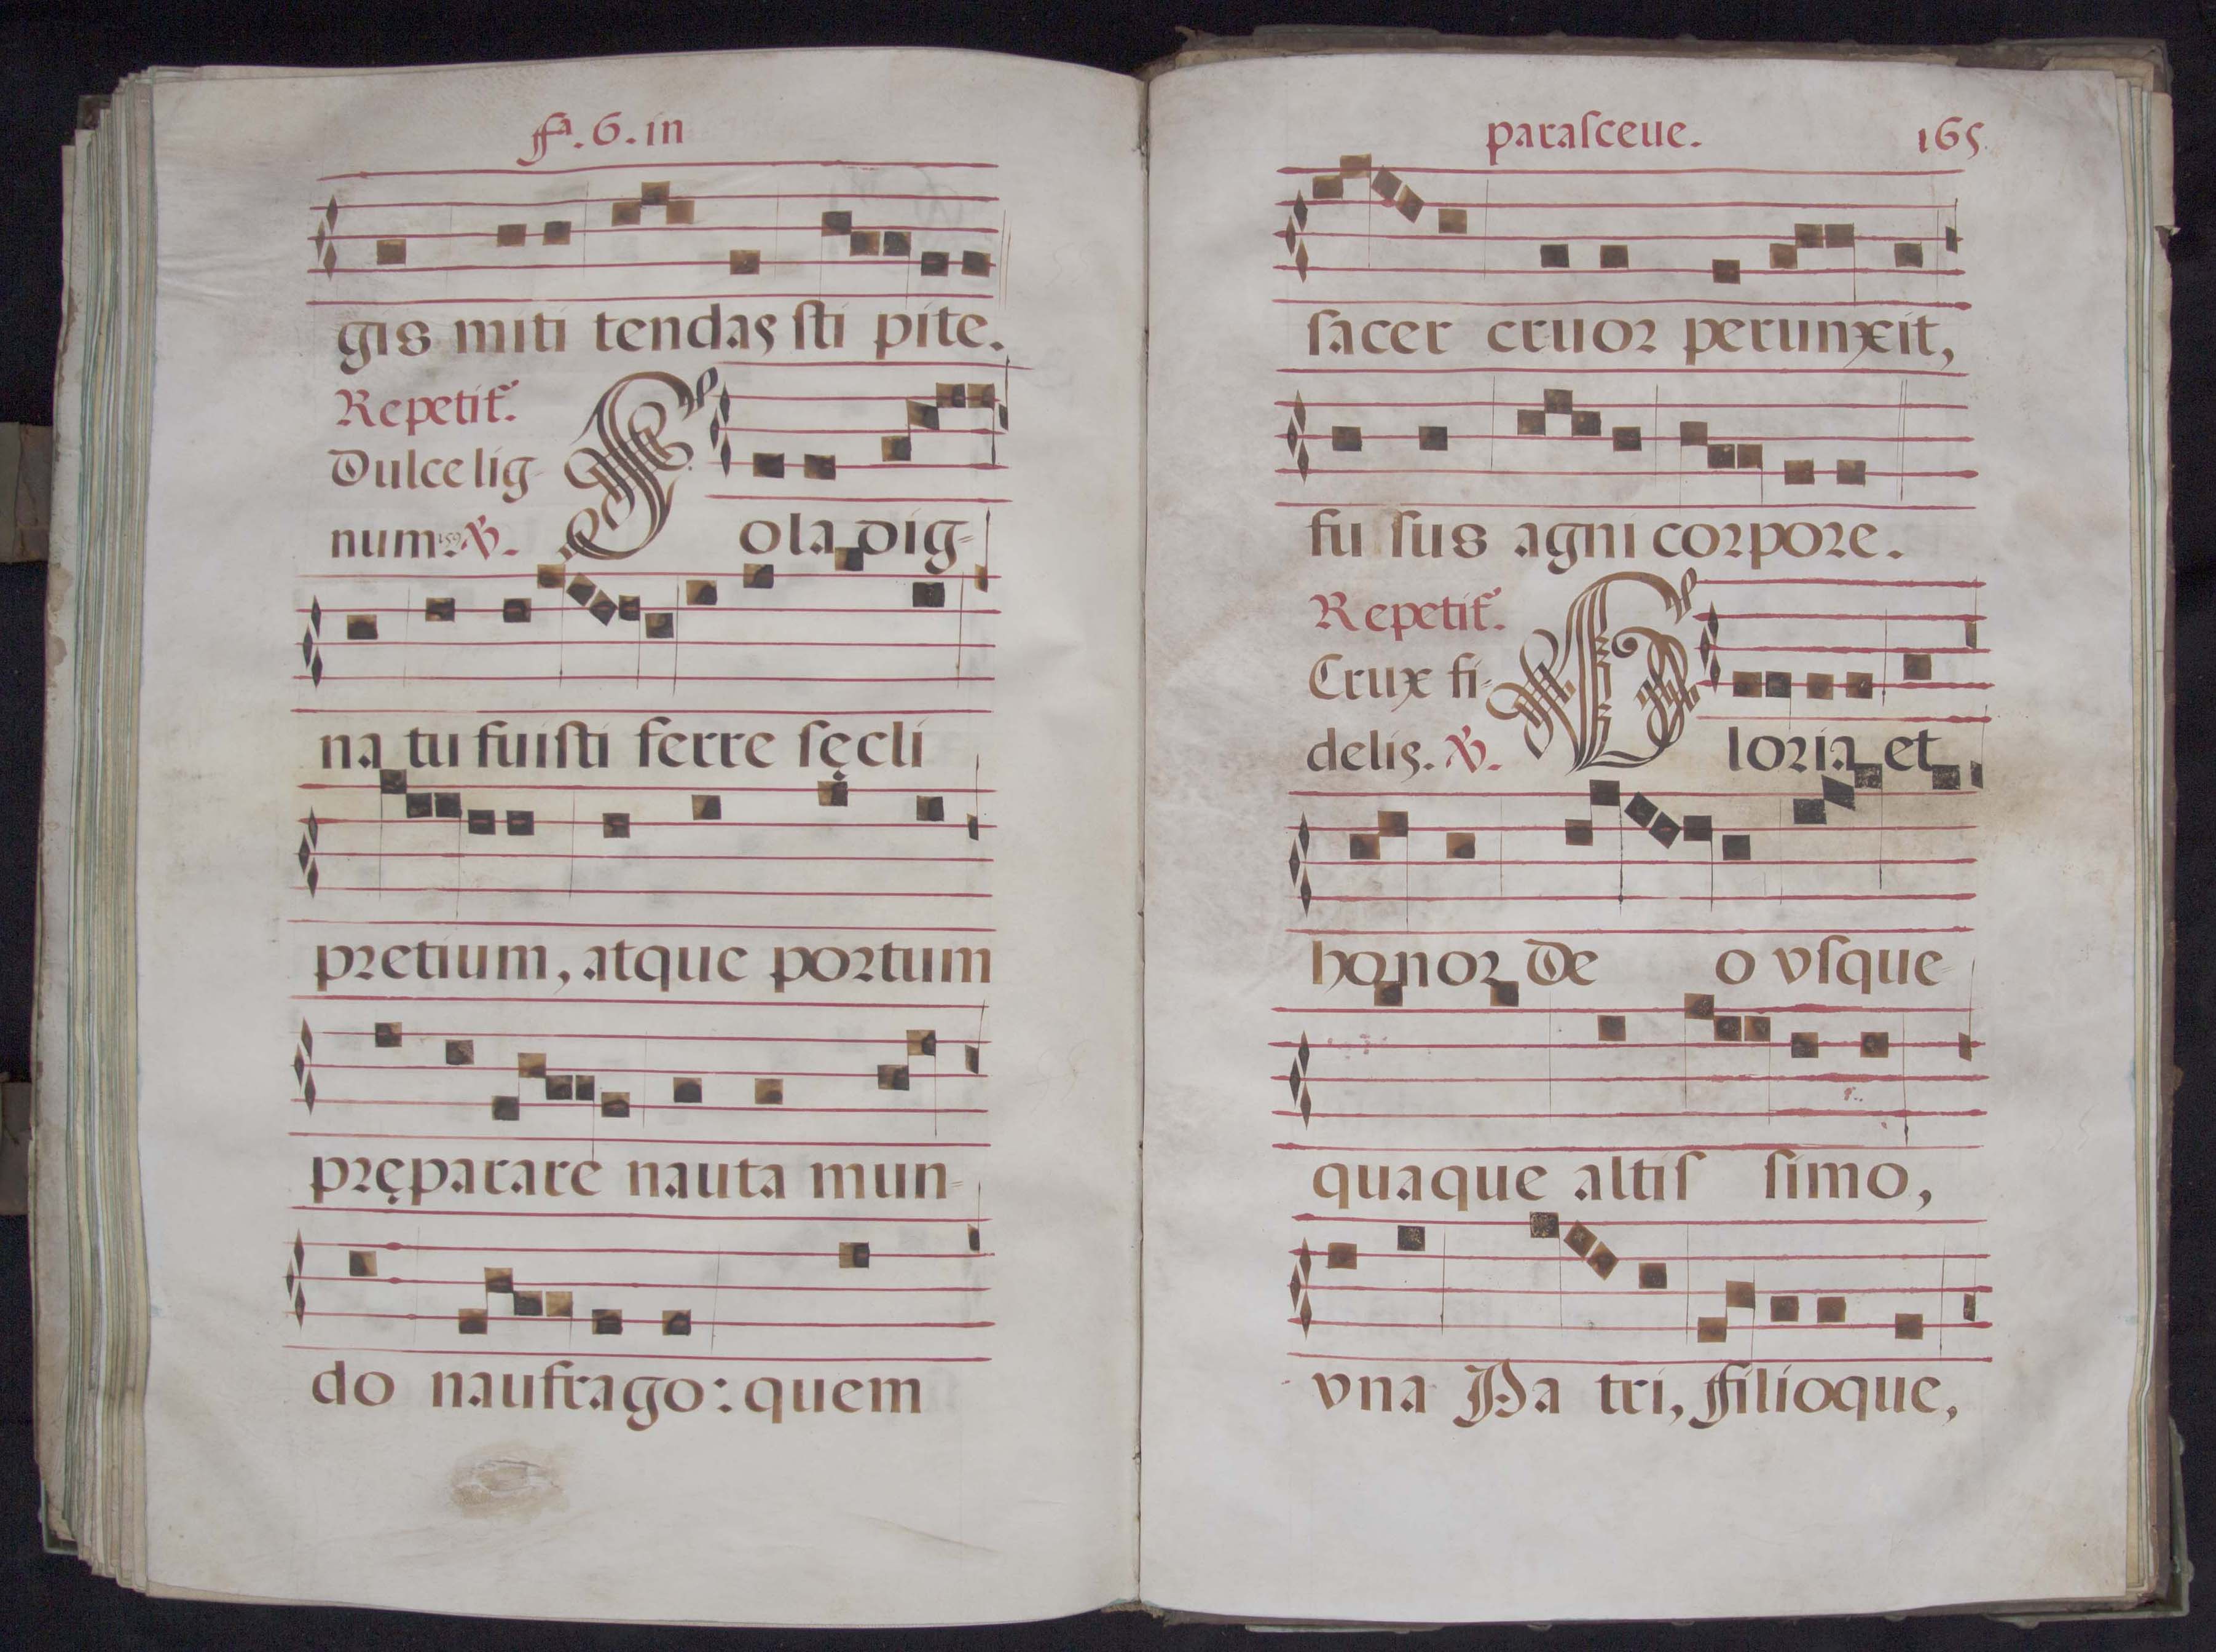 fa. 6. in
gis miti tendas ſti pite.
Repetit.
Dulce lig-
num. 159. V.
S ola dig=
na tu fuiſti ferre ſęcli
pretium, atque portum
pręparare nauta mun=
do naufrago: quem
paraſceue. 165.
ſacer cruor perunxit,
fu ſus agni corpore.
Repetit.
Crux fi-
delis. V.
G loria et
honor De o vſque=
quaque altiſ ſimo,
vna Pa tri, filioque,